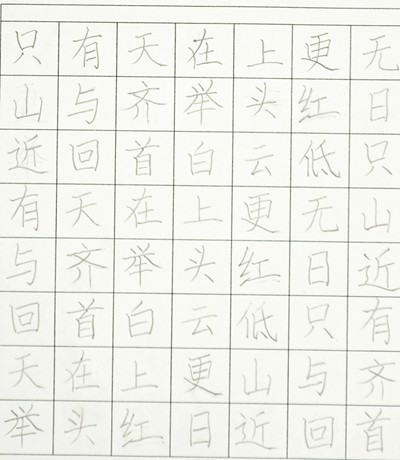 只有天在上更无
山与齐举头红日
近回首白云低只
有天在上更无山
与齐举头红日近
回首白云低只有
天在上更山与齐
举头红日近回首